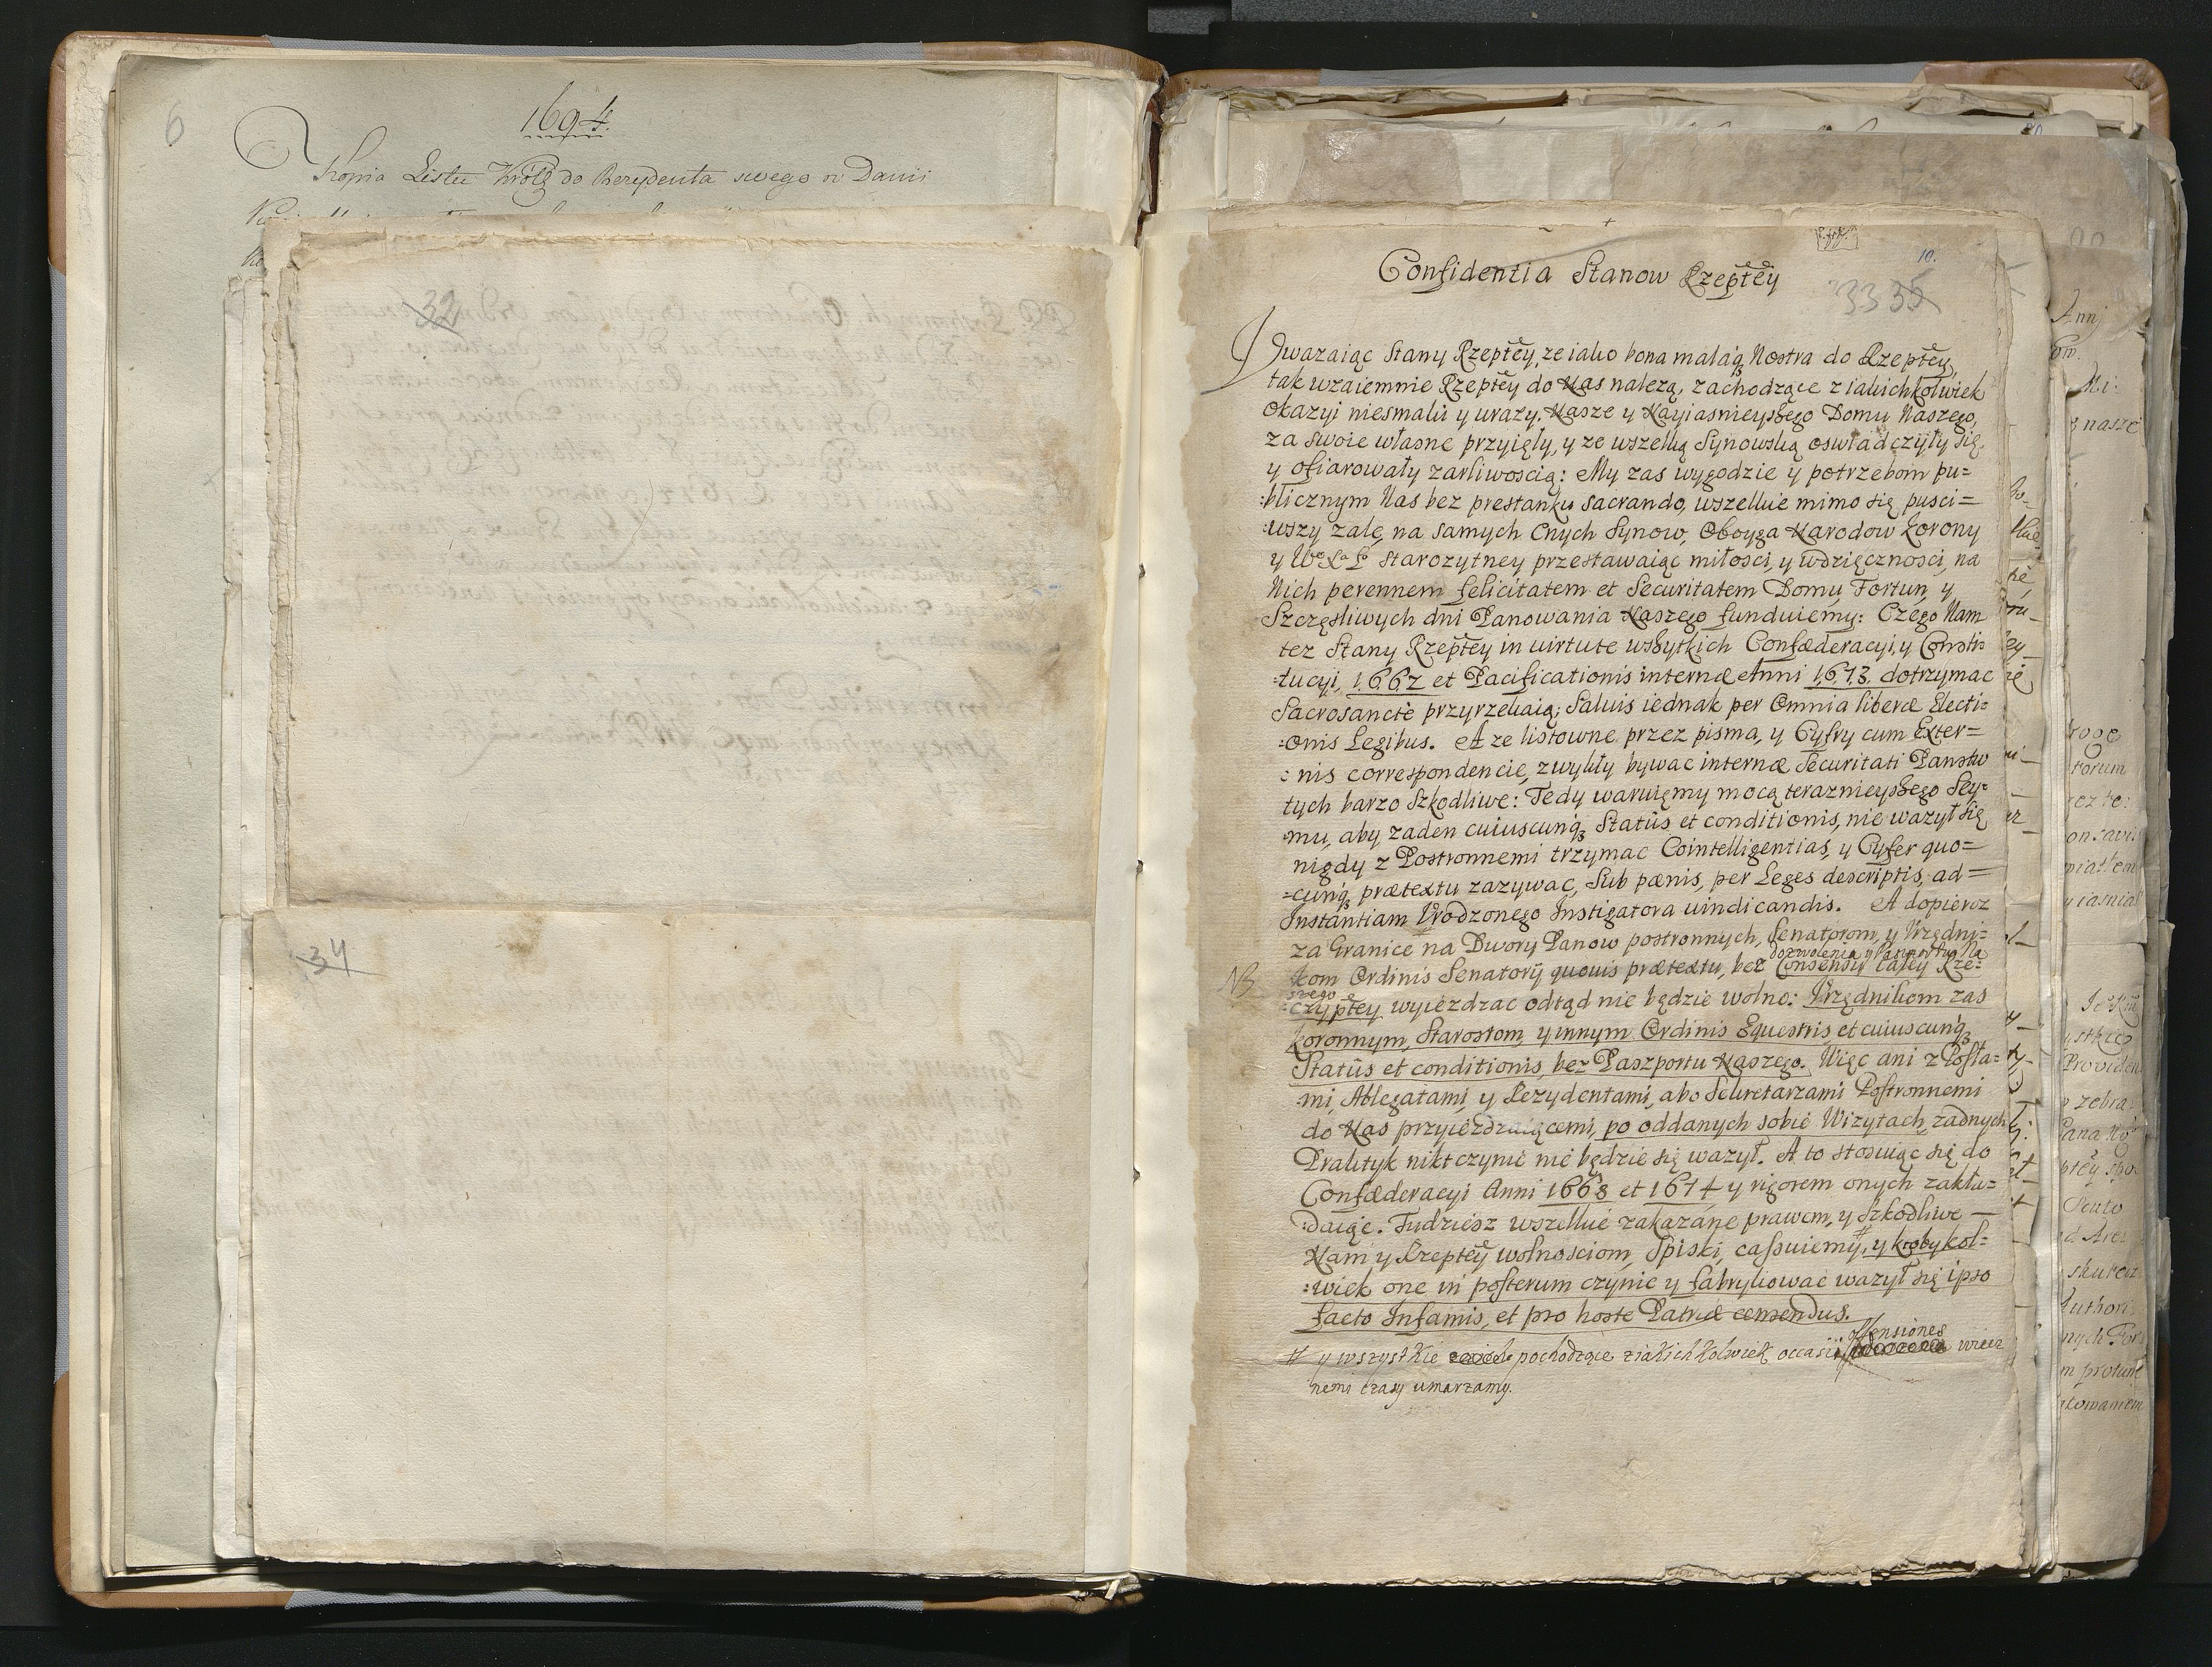 6
1694.
Kopia Listu Króla do Rezydenta swego w Danii
32
34
10.
Confidentia Stanow Rzeptey
33 35
Uwazaiąc Stany Rzeptey, ze iako bona malaq3 Nostra do Rzeptey,
tak wzaiemnie Rzeptey do Nas nalezą, zachodzące z iakichkolwiek
Okazyi niesmaki y urazy, Nasze y Nayiasnieyszego Domu Naszego,
za swoie własne przyięły, y ze wszelką Synowską oswiadczyły się
y ofiarowały zarliwoscią: My zas wygodzie y potrzebom pu=
:blicznym Nas bez prestanku sacrando, wszelkie mimo się pusci=
:wszy zale, na samych Cnych Synow, Oboyga Narodow Korony
y Wo Xa Lo Starozytney przestawaiąc miłosci, y wdzięcznosci, na
Nich perennem felicitatem et Securitatem Domu, Fortun, y
Szczęsliwych dni Panowania Naszego funduiemy: Czego Nam
tez Stany Rzeptey in uirtute wszytkich Confæderacyi, y Consti=
:tucyi, 1662 et Pacificationis internæ Anni 1673. dotrzymac
Sacrosanctè przyrzekaią; Saluis iednak per Omnia liberæ Electi=
:onis Legibus. A ze listowne przez pisma, y Cyfry cum Exter=
:nis correspondencie, zwykły bywac internæ Securitati Panstw
tych barzo Szkodliwe: Tedy waruięmy mocą terazniejszego Sey=
:mu, aby zaden cuiuscunq3 Statûs et conditionis, nie wazył się
nigdy z Postronnemi trzymac Cointelligentias, y Cyfer quo=
=cunq3 prætextu zazywac, Sub pænis, per Leges descriptis, ad=
Instantiam Vrodzonego Instigatora uindicandis. A dopieroz
za Granice na Dwory Panow postronnych, Senatorom, y Vrzędni=
dozwolenia y Na
NB kom Ordinis Senatorÿ, quouis prætextu, bez Consensu całey Rze:
szego
:czyptey wyiezdzac odtąd nie będzie wolno: Vrzędnikom zas
koronnym, Starostom, y innym Ordinis Equestris, et cuiuscunq3
Statûs et conditionis, bez Paszportu Naszego. Więc ani z Posła=
:mi, Ablegatami, y Rezydentami, abo Sekretarzami Postronnemi
do Nas przyiezdzaiącemi, po oddanych sobie Wizytach, zadnych
Praktyk nikt czynic nie będzie się wazył. A to stosuiąc się do
Confæderacyi Anni 1668 et 1674 y rigorem onych zakła=
:daiąc. Tudziesz wszelkie zakazane prawem, y Szkodliwe —
Nam y Rzeptey wolnosciom, Spiski, cassuiemy, # y ktobykol=
:wiek one in posterum czynic y fabrykowac wazył się ipso
facto Infamis, et pro hoste Patriæ censendus.
offensiones
# y wszystkie pochodzące z iakichkolwiek occasii wiecz
nemi czasy umarzamy.
Annj
nasze
roge
torum
Provide
zebra
Scuto
skutecz
Authori